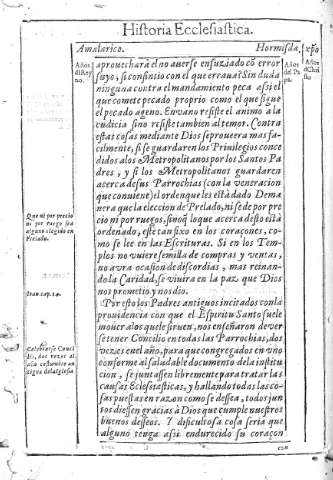 Historia Ecclesiastica.
Amalarico. Hormisda. xp̃o
Años del Reyno.
Años del Papa.
Años de Christo
aprouecharà el no auerse ensuziado cõ error
suyo, si consintio con el que erraua? Sin duda
ninguna contra el mandamiento peca assi el
que comete pecado proprio como el que sigue
el pecado ageno. En vano resiste el animo a la
cudicia sino resiste tambien al temor. Contra
estas cosas mediante Dios se prouera mas fa-
cilmente, si se guardaren los Priuilegios conce
didos a los Metropolitanos por los Santos Pa
dres, y si los Metropolitanos guardaren
acerca de sus Parrochias (con la veneracion
que conuiene) el orden que les està dado De ma
nera que la eleccion de Prelado, ni se dè por pre
cio ni por ruegos, sino q̃ lo que acerca desto està
ordenado, estè tan fixo en los coraçones, co-
mo se lee en las Escrituras. Si en los Tem-
plos no vuiere semilla de compras y ventas,
no aura ocasion de discordias, mas reinan-
do la Caridad, se viuira en la paz que Dios
nos prometio y nos dio.
Por esto los Padres antiguos incitados con la
prouidencia con que el Espiritu Santo suele
mouer a los que le siruen, nos enseñaron deuer
se tener Concilio en todas las Parrochias, dos
vezes en el año, para que congregados en vno
conforme al saludable documento de la institu
cion, se juntassen libremente para tratar las
causas Eclesiasticas, y hallando todas las co-
sas puestas en razon como se dessea, todos jun
tos diessen gracias à Dios que cumple nuestros
buenos desseos. Y dificultosa cosa seria que
alguno tenga assi endurecido su coraçon
Que ni por precio
ni por ruego sea
alguno elegido en
Prelado.
Ioan. cap. 14.
Celebrarse Conci
lio, dos vezes al
año costumbre an
tigua de la Iglesia